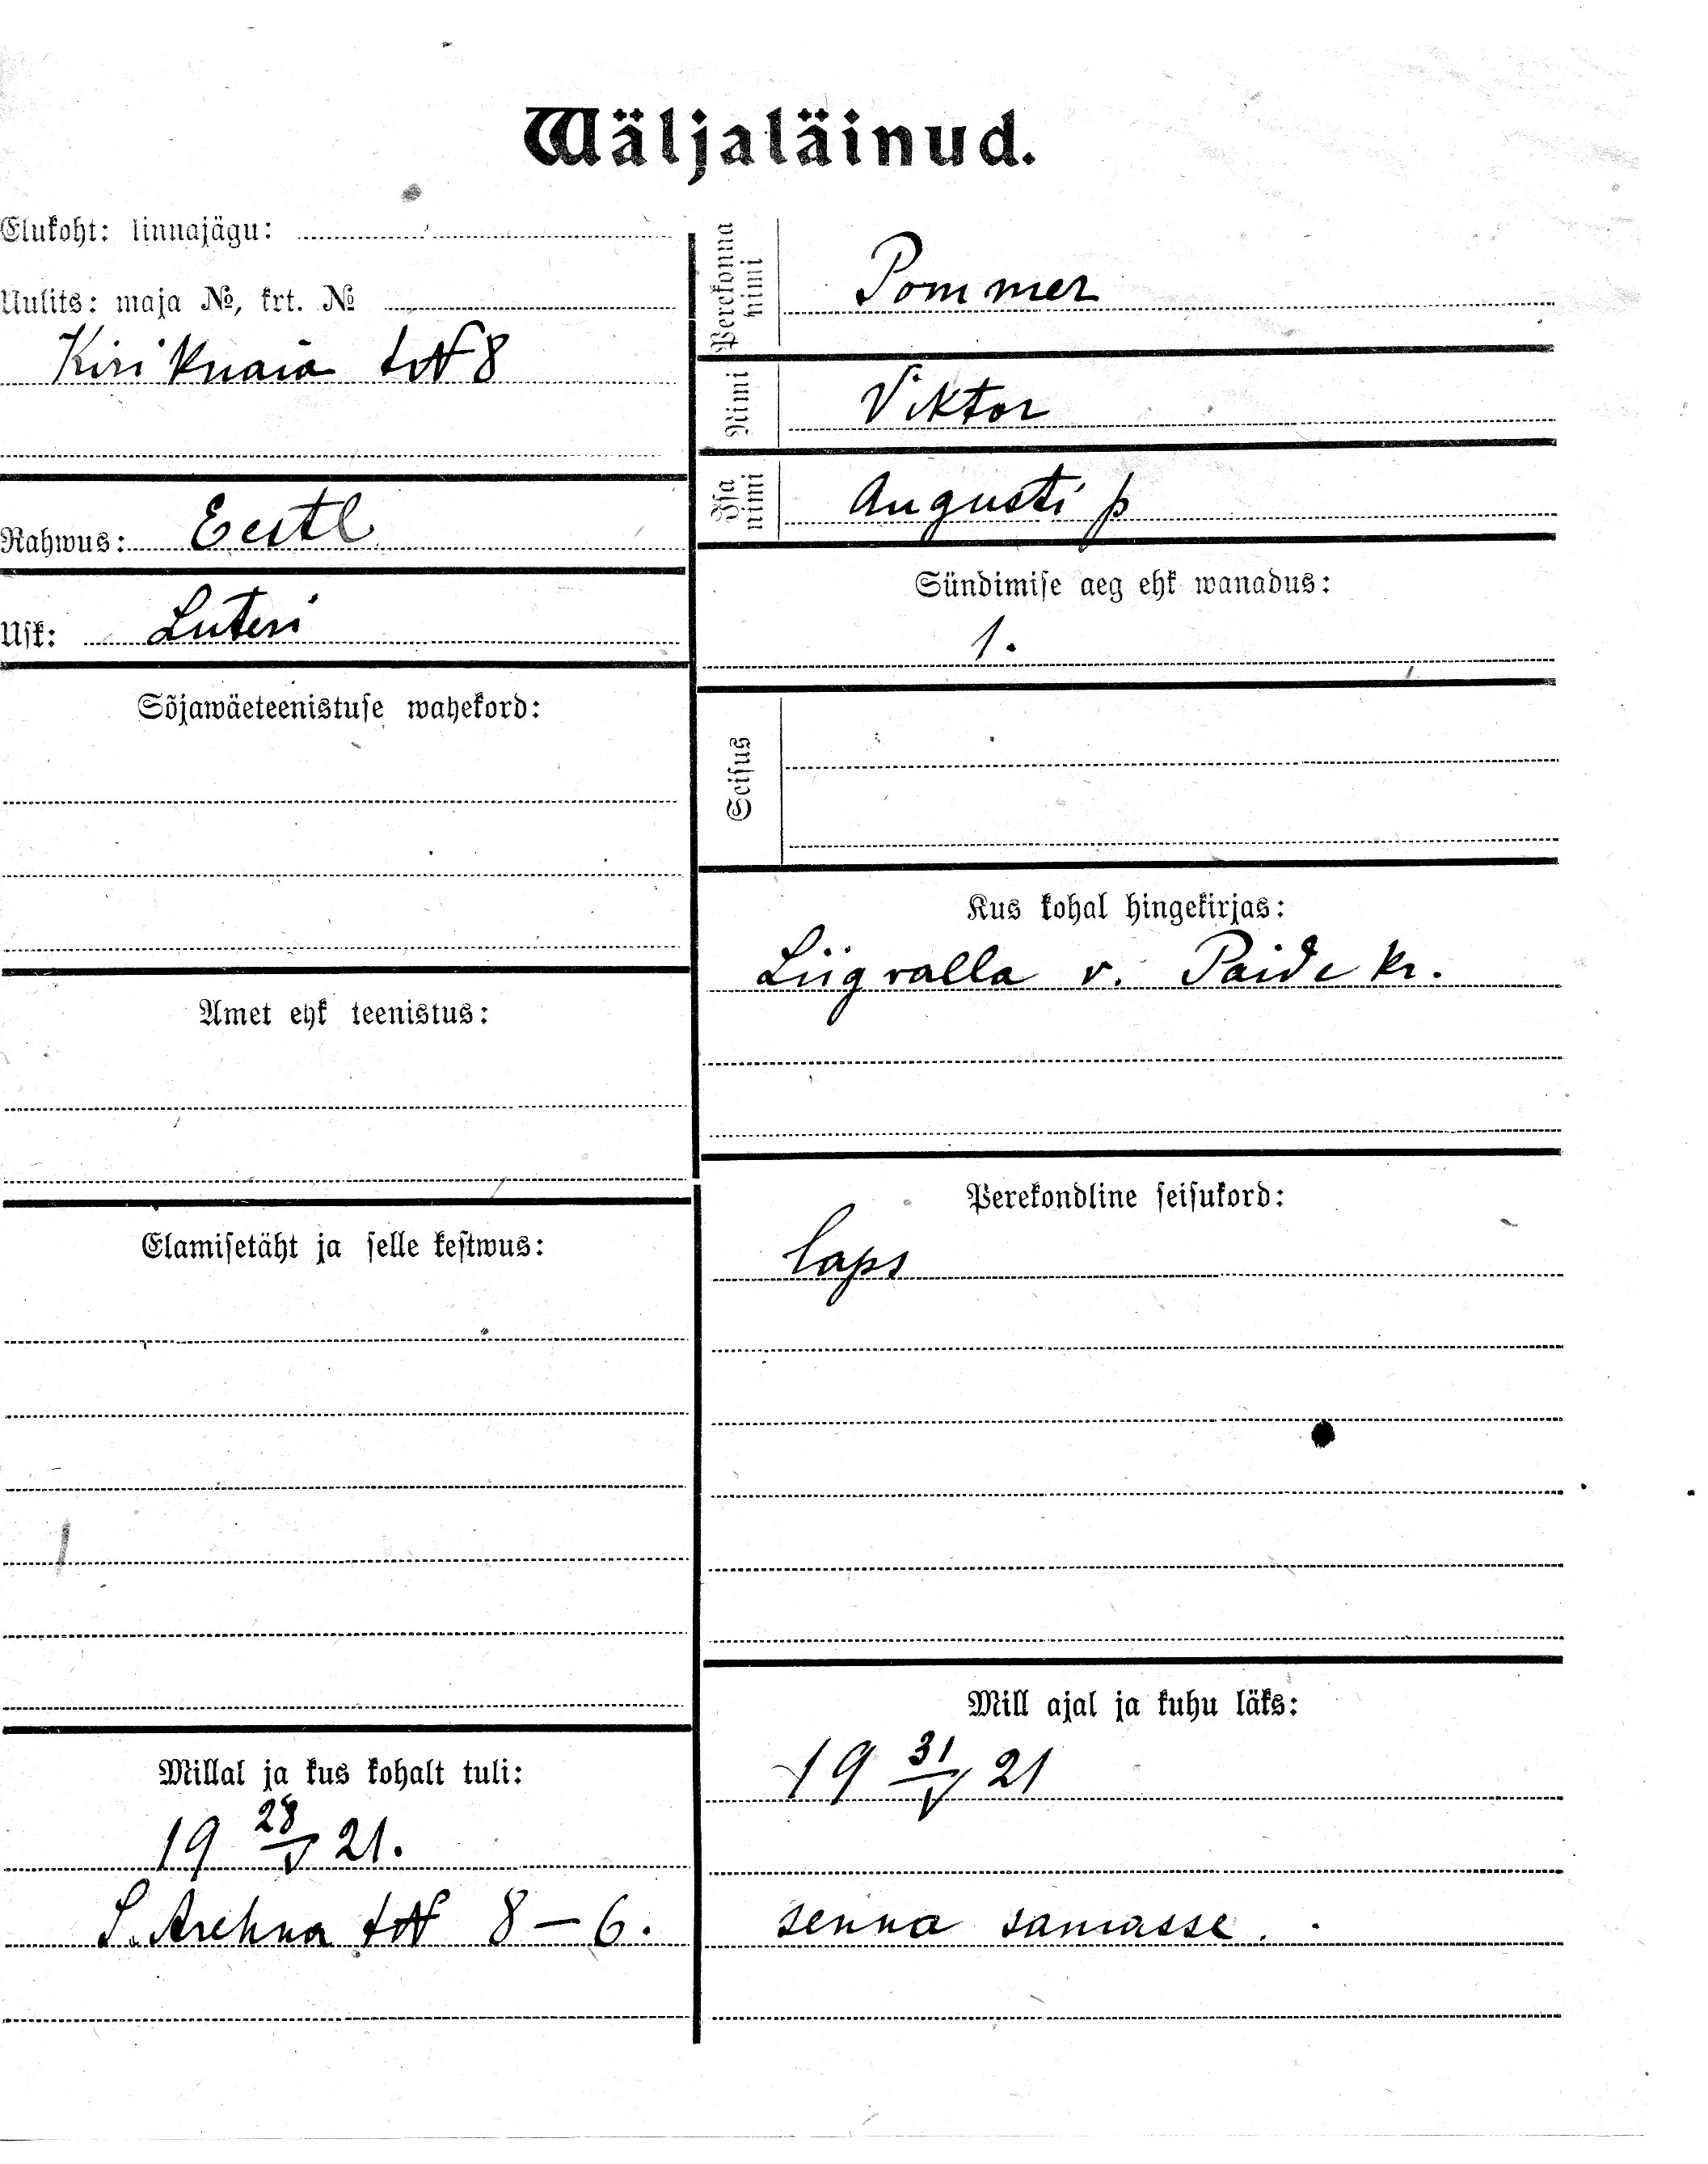 Wäljaläinud.
Elukoht: linnajägu:
Uulits: maja №, krt. №
Kirikuaia № 8
Rahwus: Eestl
Usk: Luteri
Sõjawäeteenistuse wahekord:
Amet ehk teenistus:
Elamisetäht ja selle kestwus:
Millal ja kus kohalt tuli:
19 28/V 21.
S. № 8 – 6.
Perekonna nimi
Pommer
Nimi
Viktor
Isa nimi
Augusti p
Sündimise aeg ehk wanadus:
1.
Seisus
Kus kohal hingekirjas:
Liigvalla v. Paide kr.
Perekondline seisukord:
laps
Mill ajal ja kuhu läks:
19 31/V 21
senna samasse.